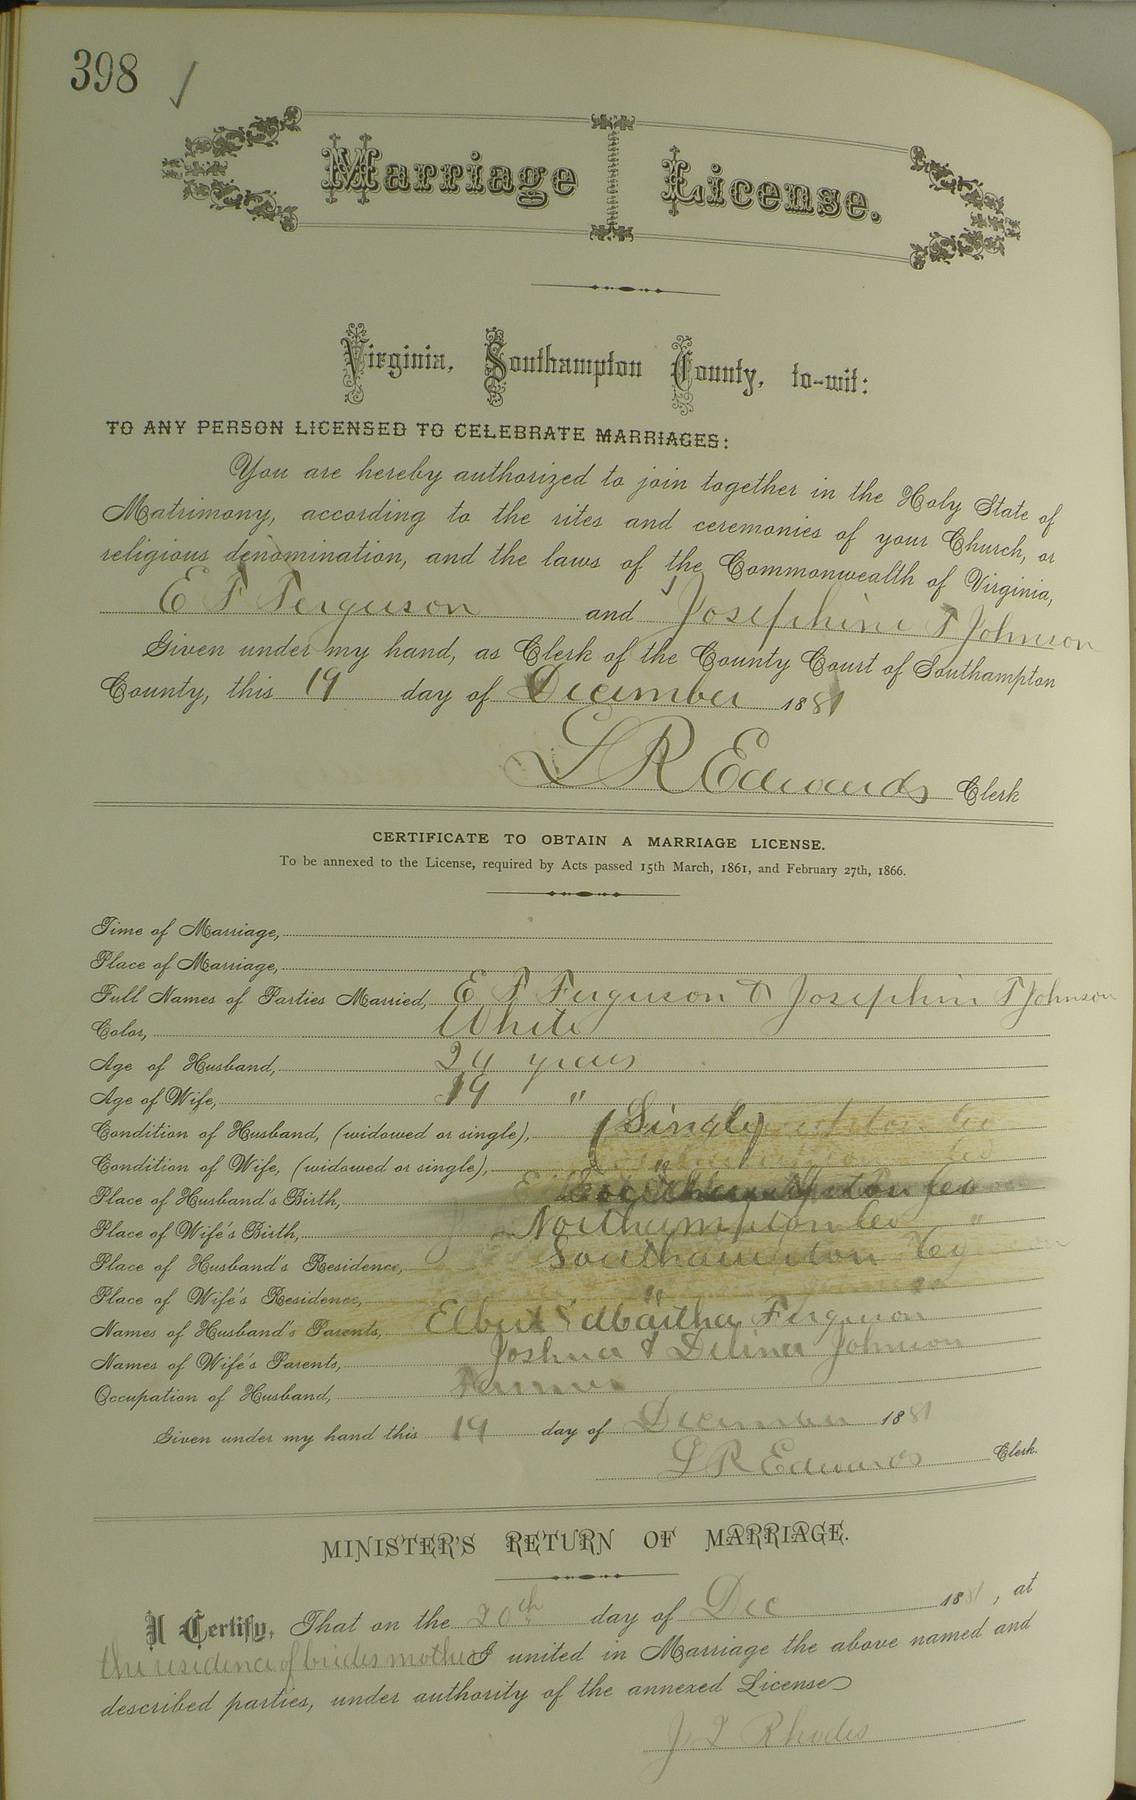 398 ✓
Marriage License.
Virginia, Southampton County, to-wit:
TO ANY PERSON LICENSED TO CELEBRATE MARRIAGES:
You are hereby authorized to join together in the Holy State of
Matrimony, according to the rites and ceremonies of your Church, or
religious denomination, and the laws of the Commonwealth of Virginia,
E T Ferguson and Josephine T Johnson
Given under my hand, as Clerk of the County Court of Southampton
County, this 19 day of December 1881
L R Edwards Clerk
CERTIFICATE TO OBTAIN A MARRIAGE LICENSE.
To be annexed to the License, required by Acts passed 15th March, 1861, and February 27th, 1866.
Time of Marriage,
Place of Marriage,
Full Names of Parties Married, E T Ferguson & Josephine T Johnson
Color, White
Age of Husband, years
Age of Wife, 19 "
Condition of Husband, (widowed or single), Single
Condition of Wife, (widowed or single), "
Place of Husband's Birth, Southampton Co
Place of Wife's Birth, Northampton Co "
Place of Husband's Residence, Southampton Co
Place of Wife's Residence, "
Names of Husband's Parents, Elbert & Martha Ferguson
Names of Wife's Parents, Joshua & Johnson
Occupation of Husband, Farmer
Given under my hand this 19 day of December 1881
L R Edwards Clerk.
MINISTER'S RETURN OF MARRIAGE.
I Certify, That on the 20th day of Dec 1881, at
the residence of brides mother I united in Marriage the above named and
described parties, under authority of the annexed License
J T Rhodes